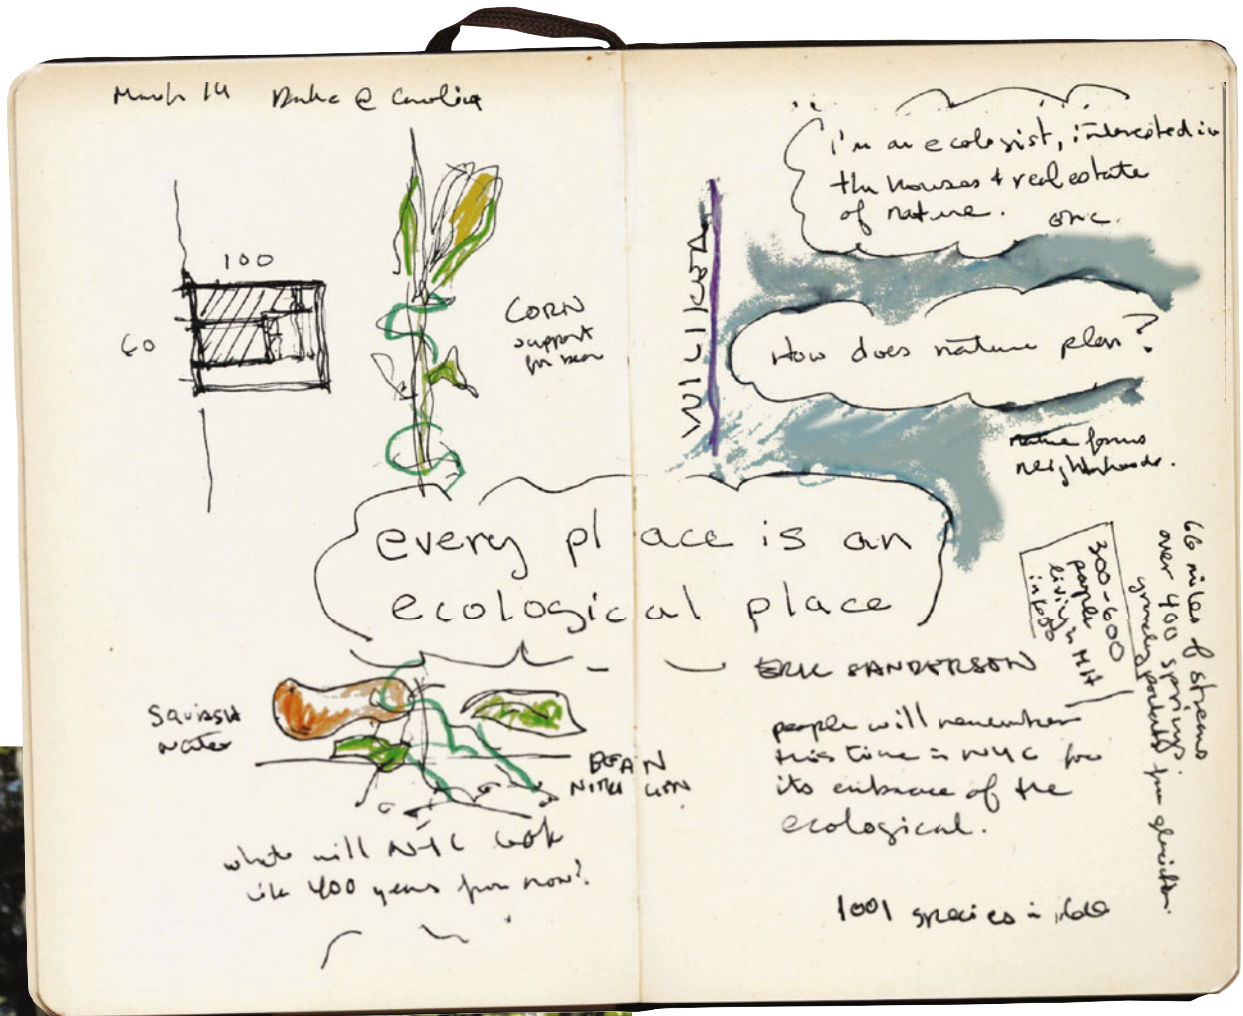 March 14 Duke @ Carolina
100
60
CORN
support
for bean
every place is an
ecological place
SQUASH
water
BEAN
NITROGEN
what will NYC look
like 400 years from now?
I'm an ecologist, interested in
the houses & real estate
of nature. Eric.
How does nature plan?
nature forms
neighborhoods.
ERIC SANDERSON
300-600
people
living in MH
in 1600
66 miles of streams
over 400 springs.
from glaciation.
people will remember
this time in NYC for
its embrace of the
ecological.
1001 species in 1600